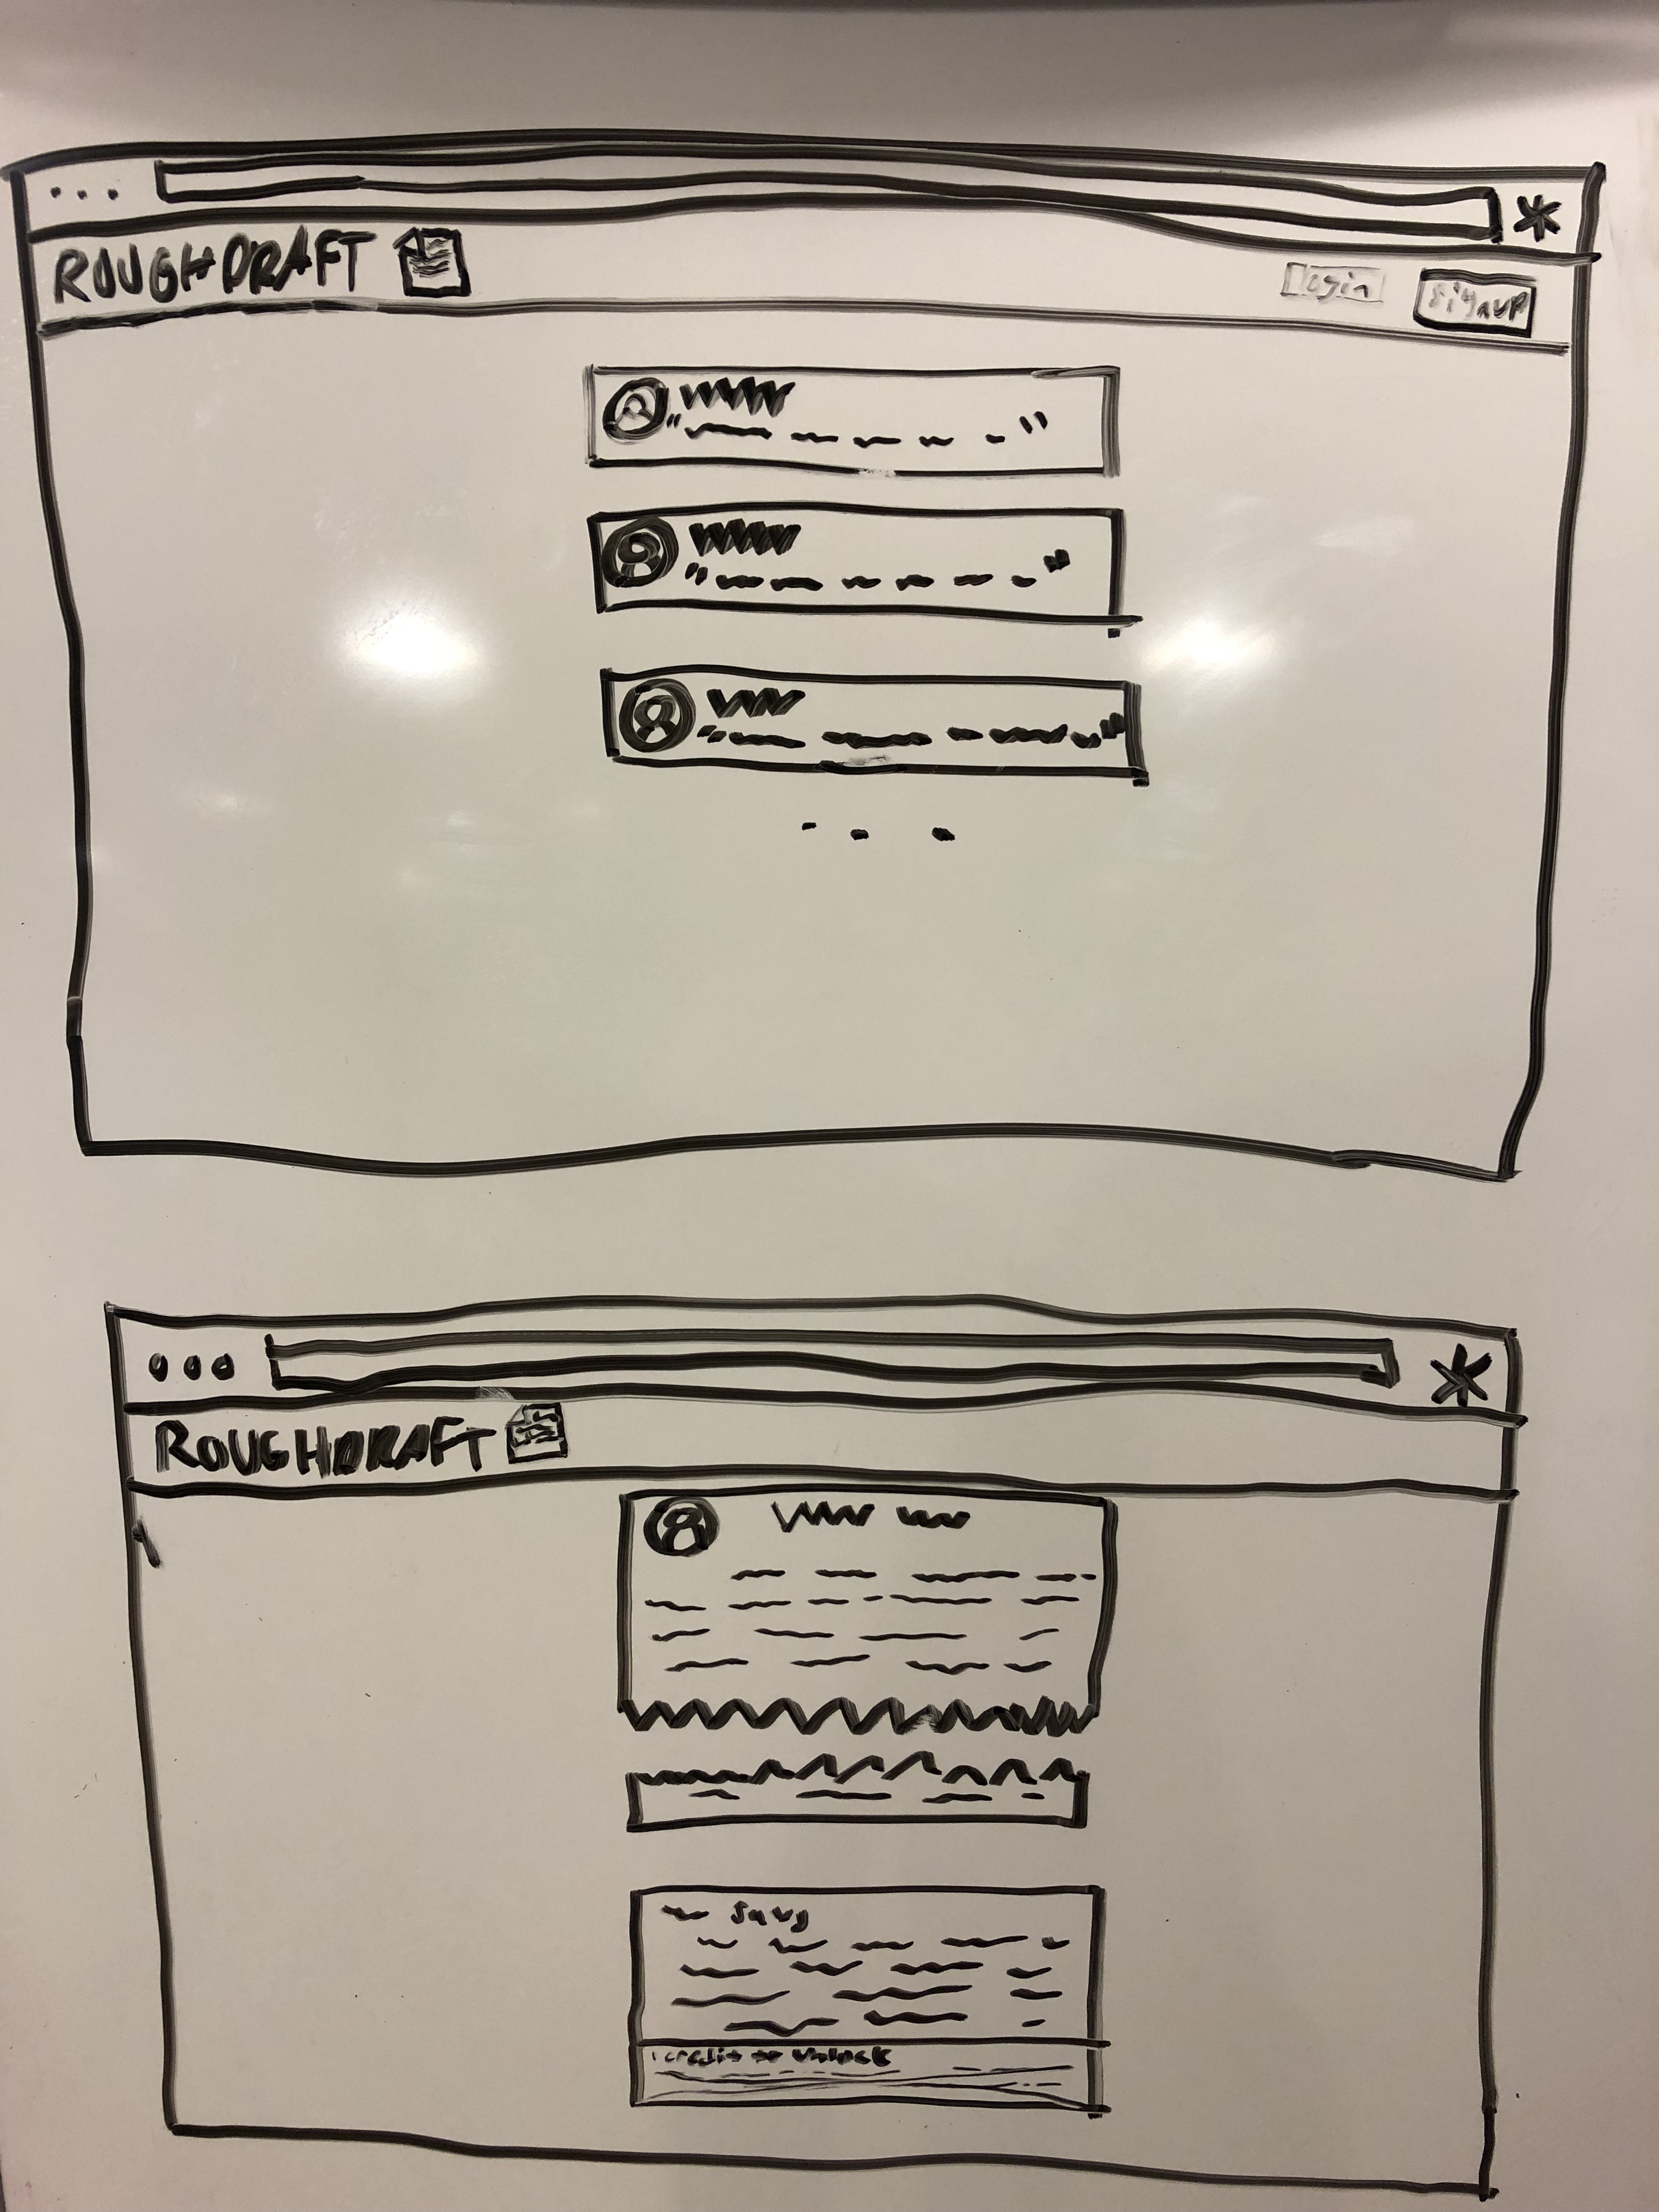 ROUGHDRAFT
login
signup
ROUGHDRAFT
says
1 credit to unlock